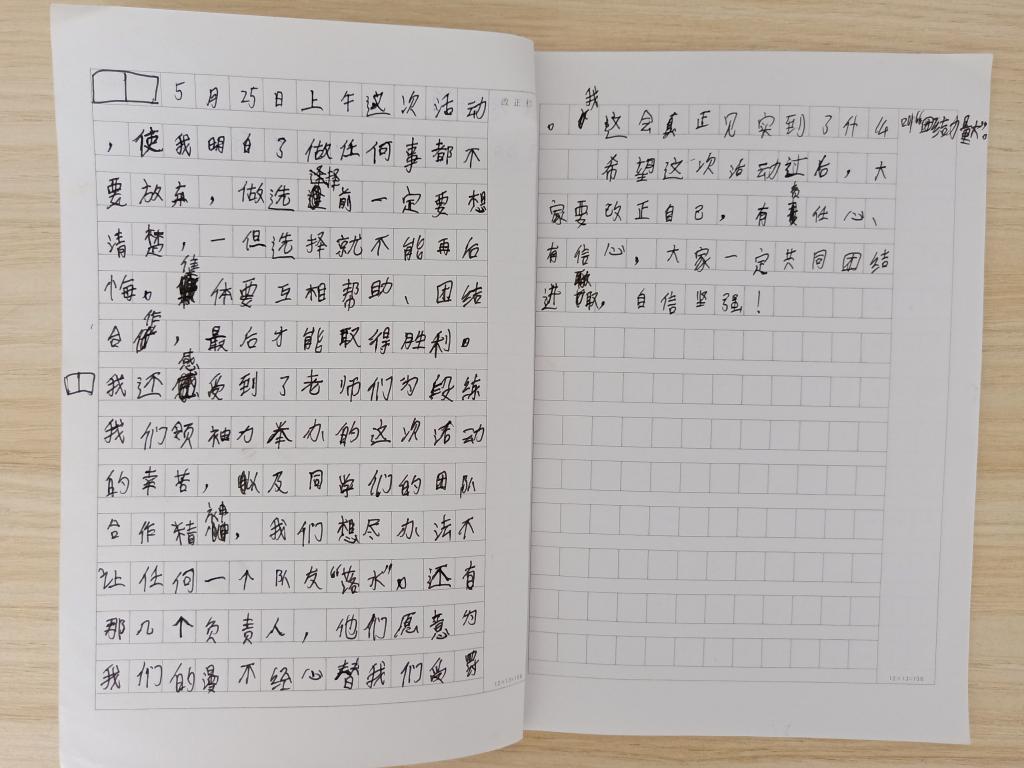 5月25日上午这次活动
，使我明白了做任何事都不
要放弃，做选择前一定要想
清楚，一但选择就不能再后
悔。体要互相帮助、团结
合作，最后才能取得胜利。
我还感受到了老师们为段练
我们领袖力举办的这次活动
的幸苦，以及同学们的团队
合作精神，我们想尽办法不
让任何一个队友“落水”。还有
那几个负责人，他们愿意为
我们的漫不经心替我们受罚
。我这会真正见实到了什么叫“团结力量大”。
希望这次活动过后，大
家要改正自己，有责任心、
有信心，大家一定共同团结
进取，自信坚强！
改正栏
12×13=156
12×13=156